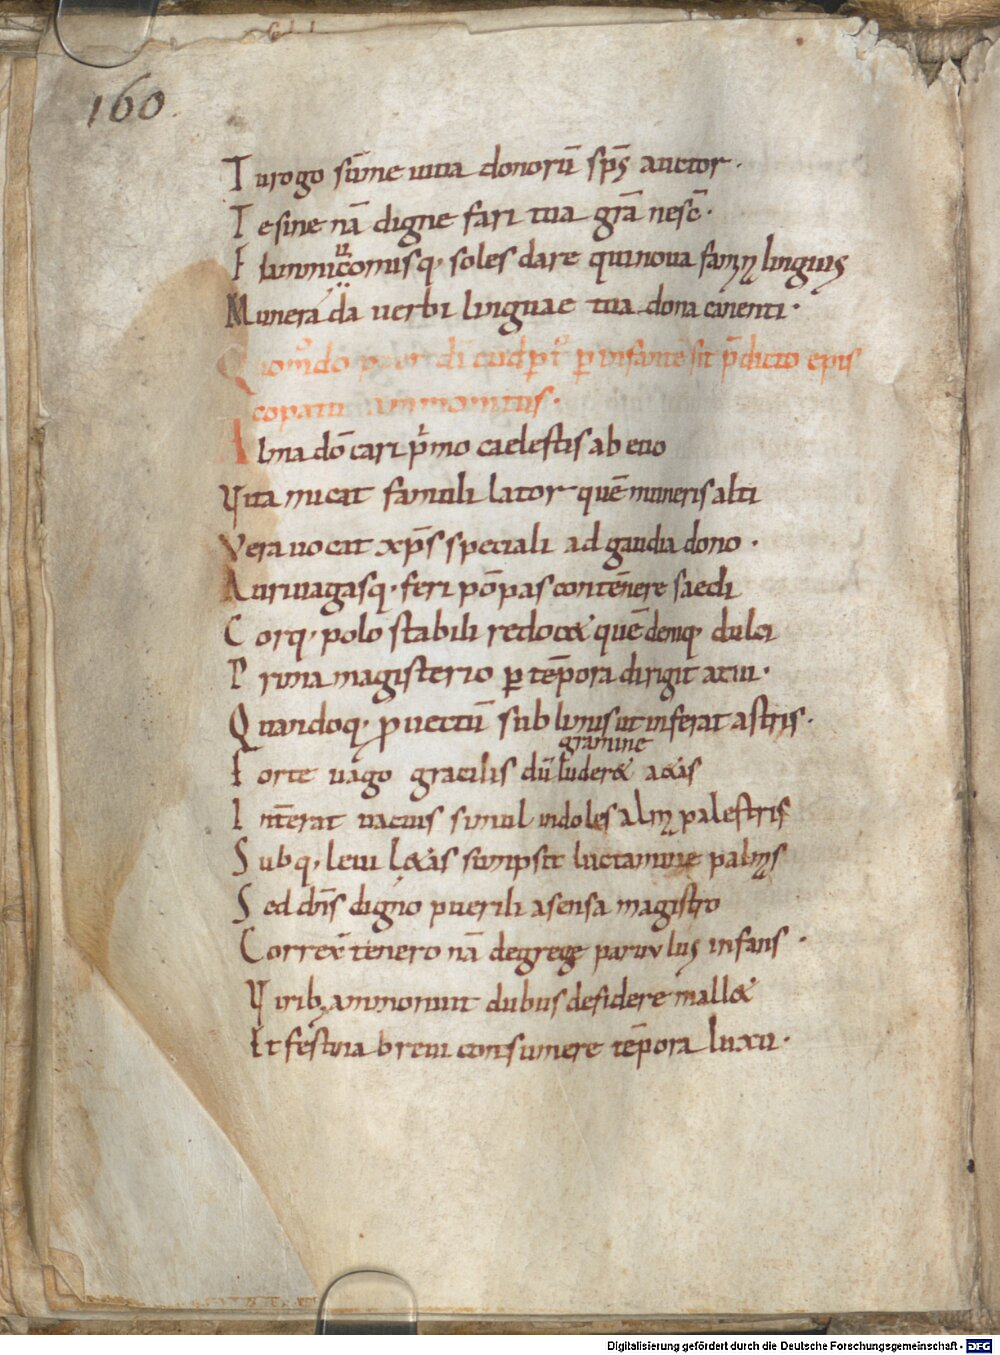 160
T u rogo sūme uiua donorū sp̄s auctor ·
T e sine nā digne fari tua grā nescē ·
F lammicomusq, soles dare qui noua famȩ linguis
M unera da uerbi linguae tua dona canenti ·
Quom̊do puer dī cudƀtꝰ ꝑ infantē sit p̄dicto epis
copatu ammonitus ·
A lma dō cari p̄mo caelestis ab euo
V ita micat famuli lator quē muneris alti
V era uocat xp̄s speciali ad gaudia dono ·
A uriuagasq, feri pōpas contēnere saecli
C orq, polo stabili redocet quē demq, dulci
P rima magisterio ꝑ tēpora dirigit aeui ·
Q uandoq, ꝓuectū sublimis ut inferat astris ·
gramine
F orte uago gracilis dū luderet aetas
I nt̄erat uacuis simul indoles almȩ palestris
S ubq, leui letas sumpsit luctamine palmas
S ed dn̄s digno puerili a sensa magistro
C orrex̄ tenero nā de grege paruulus infans ·
V irib; ammonuit dubus desidere mallet
Et festina breui consumere tēpora luxu ·
Digitalisierung gefördert durch die Deutsche Forschungsgemeinschaft - DFG